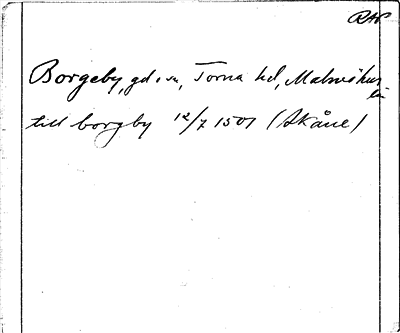 RAP
Borgeby, gd o sn, Torna hd, Malmöhus
län
till borgby 12/7 1501 (Skåne)